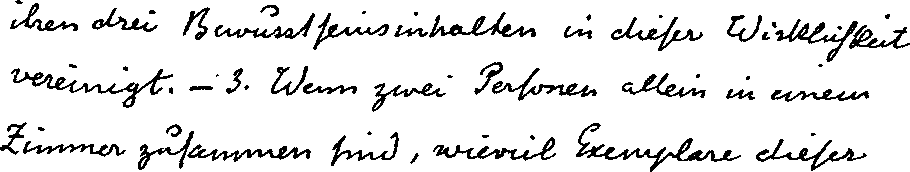 ihren drei Bewusstseinsinhalten in dieser Wirklichkeit
vereinigt. – 3. Wenn zwei Personen allein in einem
Zimmer zusammen sind, wieviel Exemplare dieser